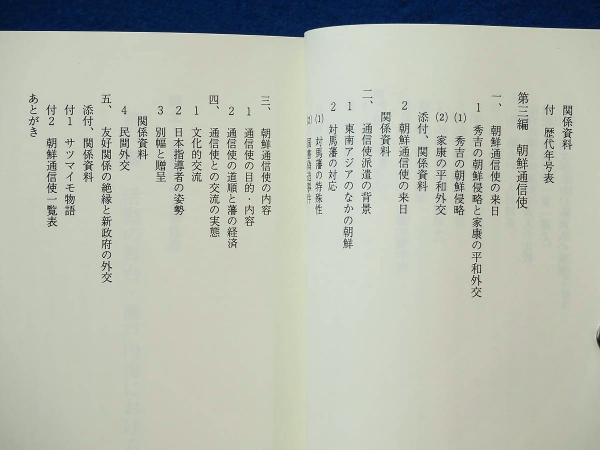 関係資料
付 歴代年号表
第三編 朝鮮通信使
一、朝鮮通信使の来日
1 秀吉の朝鮮侵略と家康の平和外交
(1) 秀吉の朝鮮侵略
(2) 家康の平和外交
添付、関係資料
2 朝鮮通信使の来日
関係資料
二、通信使派遣の背景
1 東南アジアのなかの朝鮮
2 対馬藩の対応
(1) 対馬藩の特殊性
三、朝鮮通信使の内容
1 通信使の目的・内容
2 通信使の道順と藩の経済
四、通信使との交流の実態
1 文化的交流
2 日本指導者の姿勢
3 別幅と贈呈
関係資料
4 民間外交
五、友好関係の絶縁と新政府の外交
添付、関係資料
付1 サツマイモ物語
付2 朝鮮通信使一覧表
あとがき